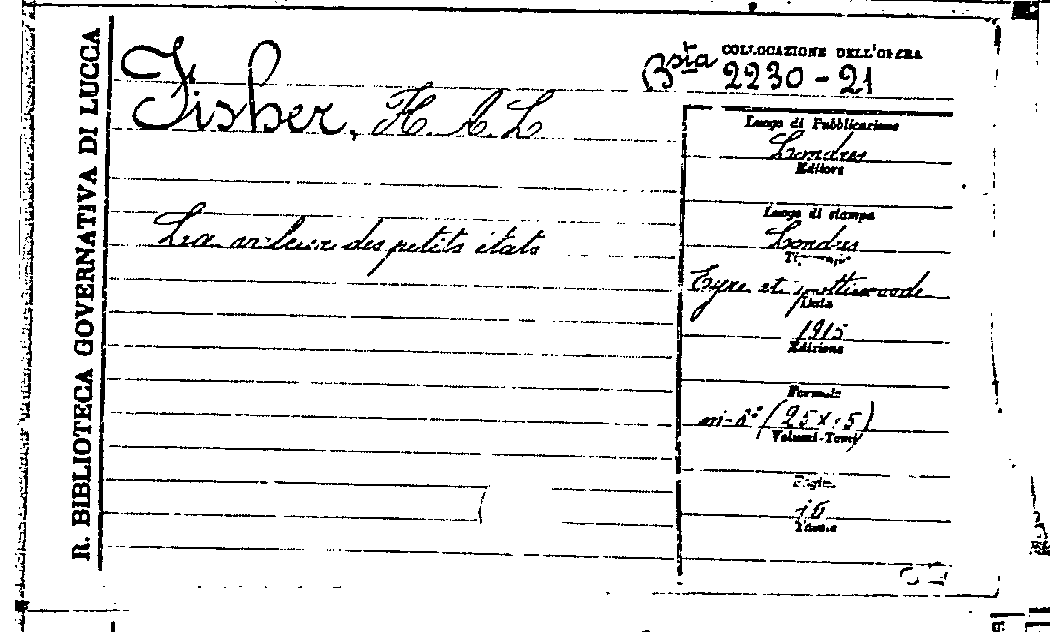 R. BIBLIOTECA GOVERNATIVA DI LUCCA
Fisher, H. A. L
COLLOCAZIONE DELL'OPERA
Bsta 2230-21
La valeur des petits états
Luogo di Pubblicazione
Londres
Editore
Luogo di stampa
Londres
Tipografo
Eyre et spottiswoode
Data
1915
Edizione
Formato
in-8° (25×15)
Volumi-Tomi
Pagine
16
Tavole